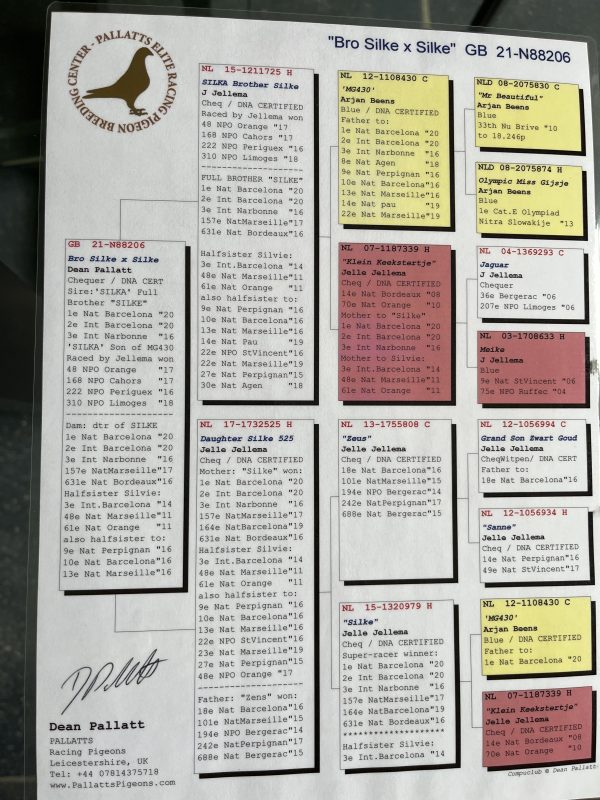 PALLATTS ELITE RACING PIGEON BREEDING CENTER-
"Bro Silke x Silke" GB 21-N88206
GB 21-N88206
Bro Silke x Silke
Dean Pallatt
Chequer / DNA CERT
Sire:'SILKA' Full
Brother "SILKE"
1e Nat Barcelona "20
2e Int Barcelona "20
3e Int Narbonne "16
'SILKA' Son of MG430
Raced by Jellema won
48 NPO Orange "17
168 NPO Cahors "17
222 NPO Periguex "16
310 NPO Limoges "18
--------------------
Dam: dtr of SILKE
1e Nat Barcelona "20
2e Int Barcelona "20
3e Int Narbonne "16
157e NatMarseille"17
631e Nat Bordeaux"16
Halfsister Silvie:
3e Int.Barcelona "14
48e Nat Marseille"11
61e Nat Orange "11
also halfsister to:
9e Nat Perpignan "16
10e Nat Barcelona"16
13e Nat Marseille"16
NL 15-1211725 H
SILKA Brother Silke
J Jellema
Cheq / DNA CERTIFIED
Raced by Jellema won
48 NPO Orange "17
168 NPO Cahors "17
222 NPO Periguex "16
310 NPO Limoges "18
--------------------
FULL BROTHER "SILKE"
1e Nat Barcelona "20
2e Int Barcelona "20
3e Int Narbonne "16
157e NatMarseille"17
631e Nat Bordeaux"16
Halfsister Silvie:
3e Int.Barcelona "14
48e Nat Marseille"11
61e Nat Orange "11
also halfsister to:
9e Nat Perpignan "16
10e Nat Barcelona"16
13e Nat Marseille"16
14e Nat Pau "19
22e NPO StVincent"16
22e Nat Marseille"19
27e Nat Perpignan"15
30e Nat Agen "18
NL 17-1732525 H
Daughter Silke 525
Jelle Jellema
Cheq / DNA CERTIFIED
Mother: "Silke" won:
1e Nat Barcelona "20
2e Int Barcelona "20
3e Int Narbonne "16
157e NatMarseille"17
164e NatBarcelona"19
631e Nat Bordeaux"16
Halfsister Silvie:
3e Int.Barcelona "14
48e Nat Marseille"11
61e Nat Orange "11
also halfsister to:
9e Nat Perpignan "16
10e Nat Barcelona"16
13e Nat Marseille"16
22e NPO StVincent"16
23e Nat Marseille"19
27e Nat Perpignan"15
48e NPO Orange "17
--------------------
Father: "Zens" won:
18e Nat Barcelona"16
101e NatMarseille"15
194e NPO Bergerac"14
242e NatPerpignan"17
688e Nat Bergerac"15
NL 12-1108430 C
'MG430'
Arjan Beens
Blue / DNA CERTIFIED
Father to:
1e Nat Barcelona "20
2e Int Barcelona "20
3e Int Narbonne "16
8e Nat Agen "18
9e Nat Perpignan "16
10e Nat Barcelona"16
13e Nat Marseille"16
14e Nat pau "19
22e Nat Marseille"19
NL 07-1187339 H
"Klein Keekstertje"
Jelle Jellema
Cheq / DNA CERTIFIED
14e Nat Bordeaux "08
70e Nat Orange "10
Mother to "Silke"
1e Nat Barcelona "20
2e Int Barcelona "20
3e Int Narbonne "16
Mother to Silvie:
3e Int.Barcelona "14
48e Nat Marseille"11
61e Nat Orange "11
NL 13-1755808 C
"Zeus"
Jelle Jellema
Cheq / DNA CERTIFIED
18e Nat Barcelona"16
101e NatMarseille"15
194e NPO Bergerac"14
242e NatPerpignan"17
688e Nat Bergerac"15
NL 15-1320979 H
"Silke"
Jelle Jellema
Cheq / DNA CERTIFIED
Super-racer winner:
1e Nat Barcelona "20
2e Int Barcelona "20
3e Int Narbonne "16
157e NatMarseille"17
164e NatBarcelona"19
631e Nat Bordeaux"16
********************
Halfsister Silvie:
3e Int.Barcelona "14
NLD 08-2075830 C
"Mr Beautiful"
Arjan Beens
Blue
33th Nu Brive "10
to 18.246p
NLD 08-2075874 H
Olympic Miss Gijsje
Arjan Beens
Blue
1e Cat.E Olympiad
Nitra Slowakije "13
NL 04-1369293 C
Jaguar
J Jellema
Chequer
36e Bergerac "06
207e NPO Limoges "06
NL 03-1708633 H
Meike
J Jellema
Blue
9e Nat StVincent "06
75e NPO Ruffec "04
NL 12-1056994 C
Grand Son Zwart Goud
Jelle Jellema
CheqWitpen/ DNA CERT
Father to:
18e Nat Barcelona"16
NL 12-1056934 H
"Sanne"
Jelle Jellema
Cheq / DNA CERTIFIED
14e Nat Perpignan"16
49e Nat StVincent"17
NL 12-1108430 C
'MG430'
Arjan Beens
Blue / DNA CERTIFIED
Father to:
1e Nat Barcelona "20
NL 07-1187339 H
"Klein Keekstertje"
Jelle Jellema
Cheq / DNA CERTIFIED
14e Nat Bordeaux "08
70e Nat Orange "10
Dean Pallatt
PALLATTS
Racing Pigeons
Leicestershire, UK
Tel: +44 07814375718
www.PallattsPigeons.com
Compuclub © Dean Pallatt